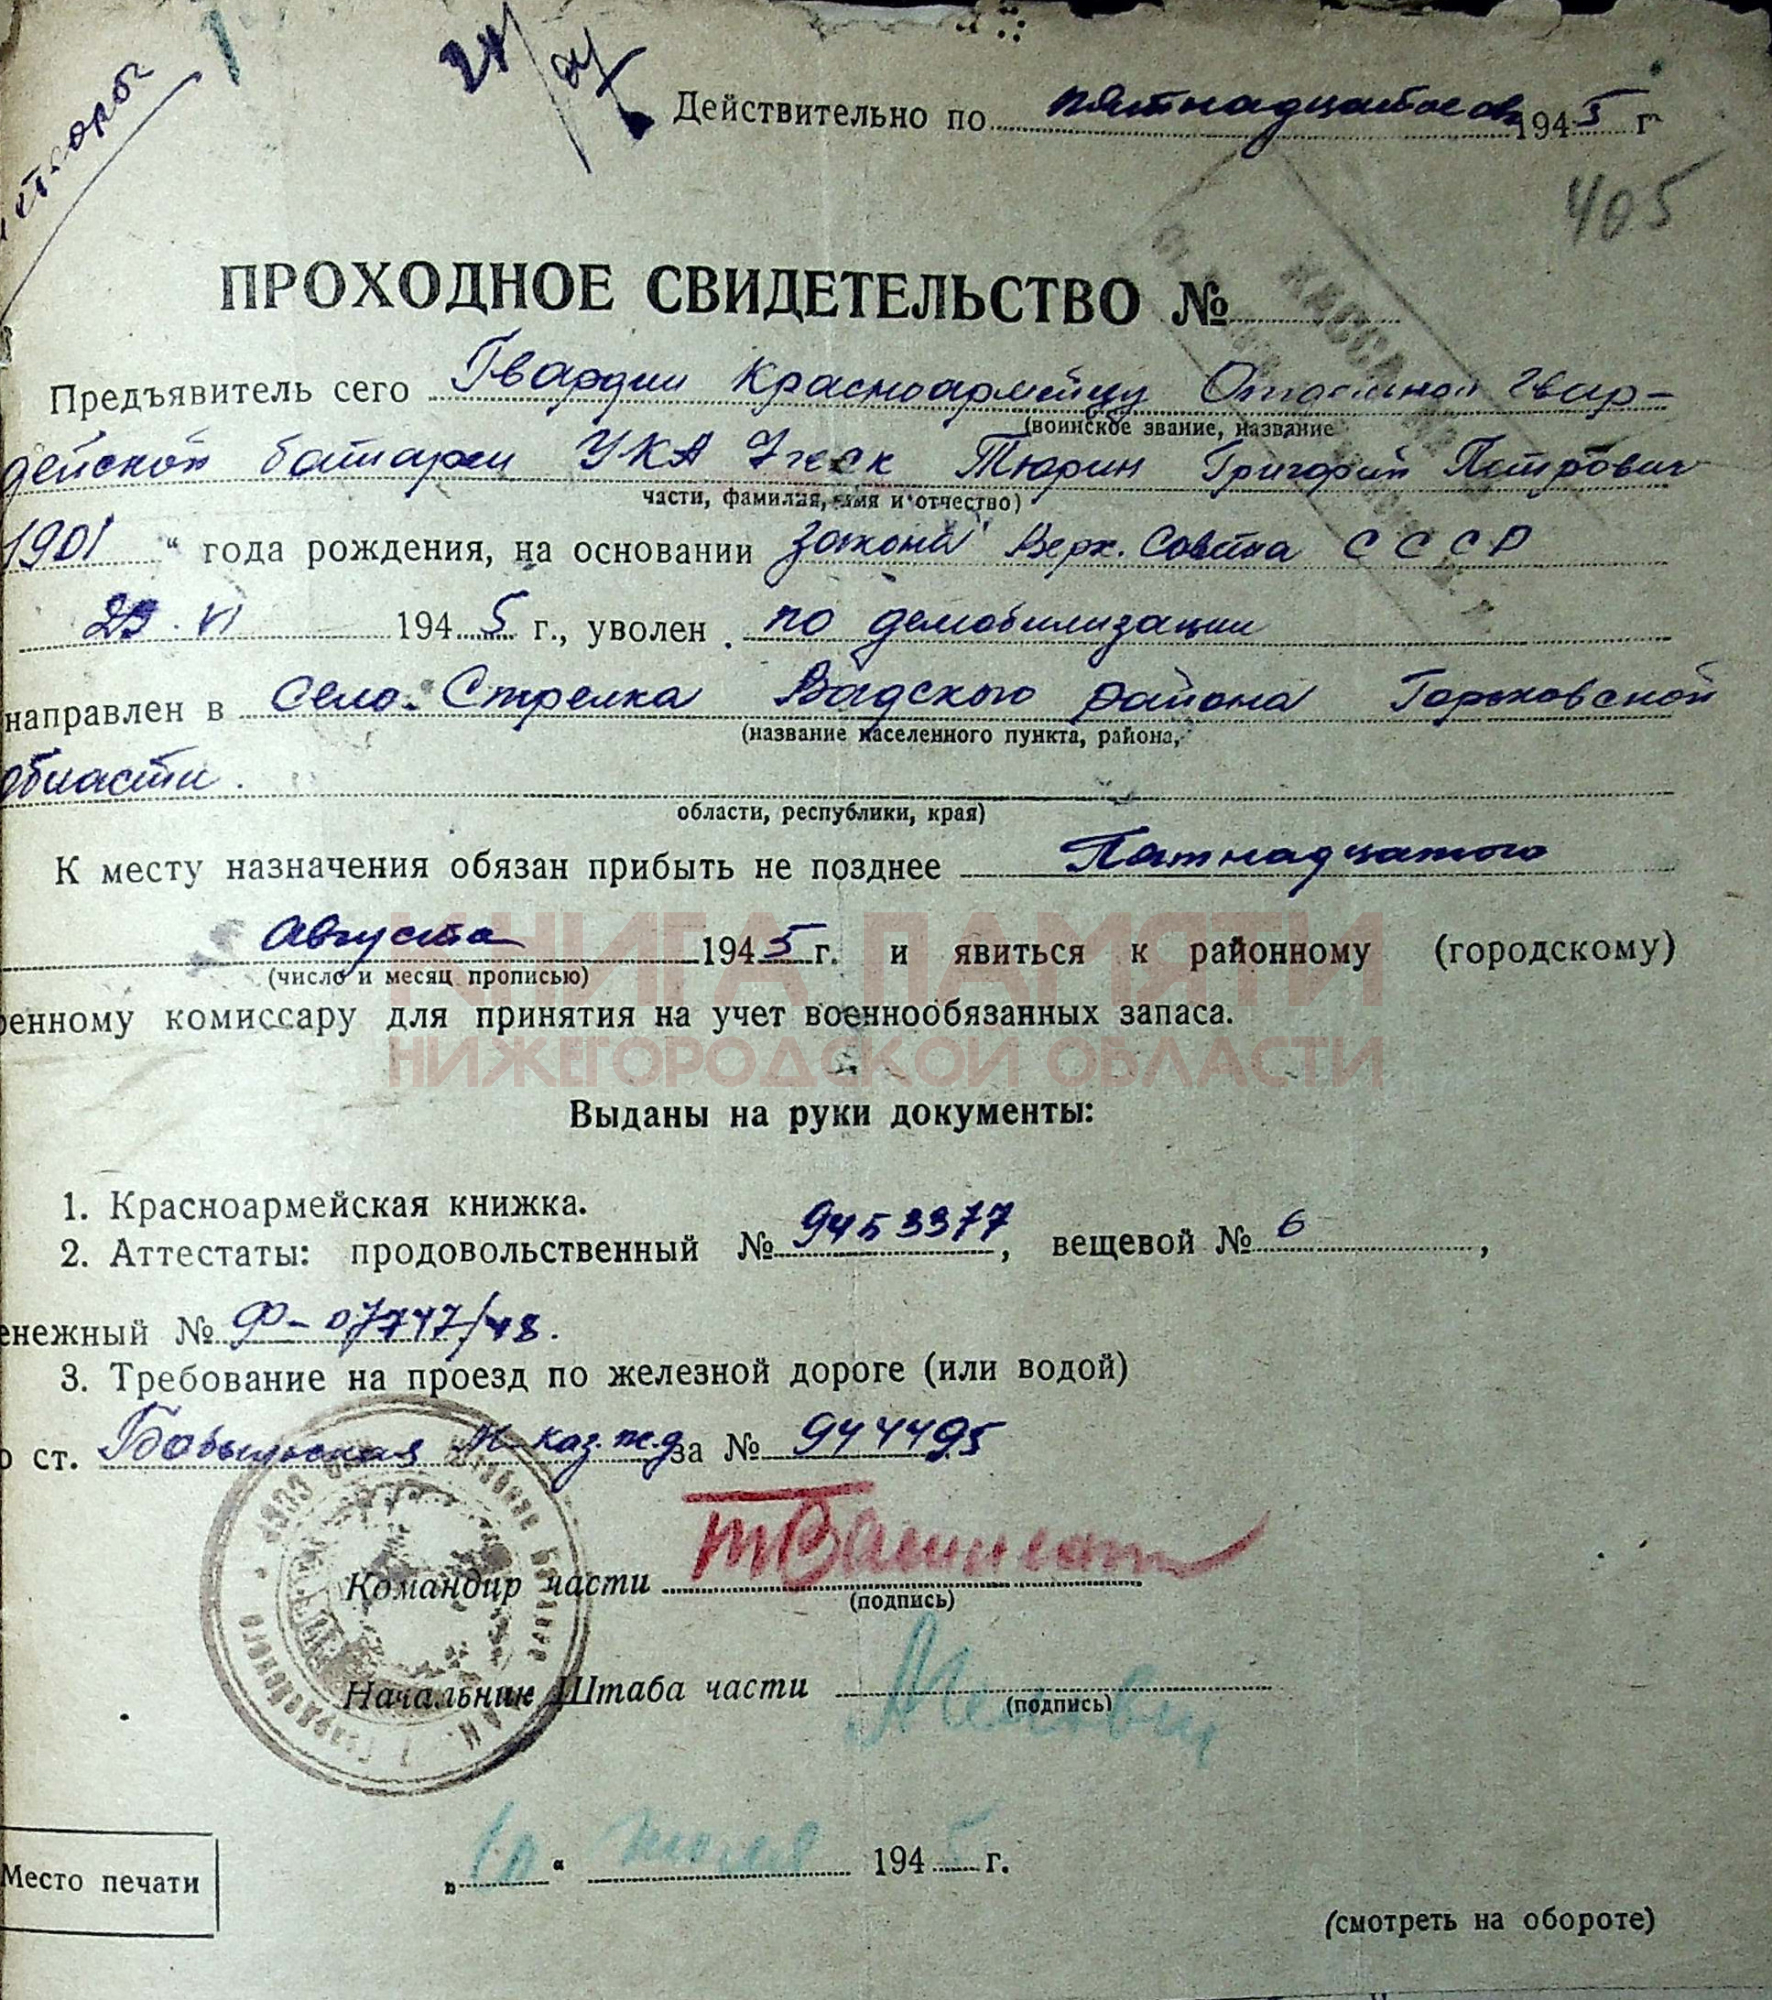 24/
Действительно по пятнадцатое авг 1945 г
405
ПРОХОДНОЕ СВИДЕТЕЛЬСТВО №
КАССА
Предъявитель сего Гвардии Красноармейцу Отдельной гвар-
(воинское звание, название
дейской батареи УКА 7 гмск Тюрин Григорий Петрович
части, фамилия, имя и отчество)
1901 " года рождения, на основании закона Верх. Совета СССР
23.VI 1945 г., уволен по демобилизации
направлен в Село Стрелка Вадского района Горьковской
(название населенного пункта, района,
области.
области, республики, края)
К месту назначения обязан прибыть не позднее Пятнадцатого
Августа 1945 г. и явиться к районному (городскому)
(число и месяц прописью)
КНИГА ПАМЯТИ
енному комиссару для принятия на учет военнообязанных запаса.
НИЖЕГОРОДСКОЙ ОБЛАСТИ
Выданы на руки документы:
1. Красноармейская книжка.
2. Аттестаты: продовольственный № 9453377, вещевой № 6,
енежный № Ф-07747/48.
3. Требование на проезд по железной дороге (или водой)
о ст. Бобыльская М-Каз.ж.д за № 944495
Командир части
(подпись)
Начальник Штаба части
(подпись)
Место печати
„10" июля 1945 г.
(смотреть на обороте)